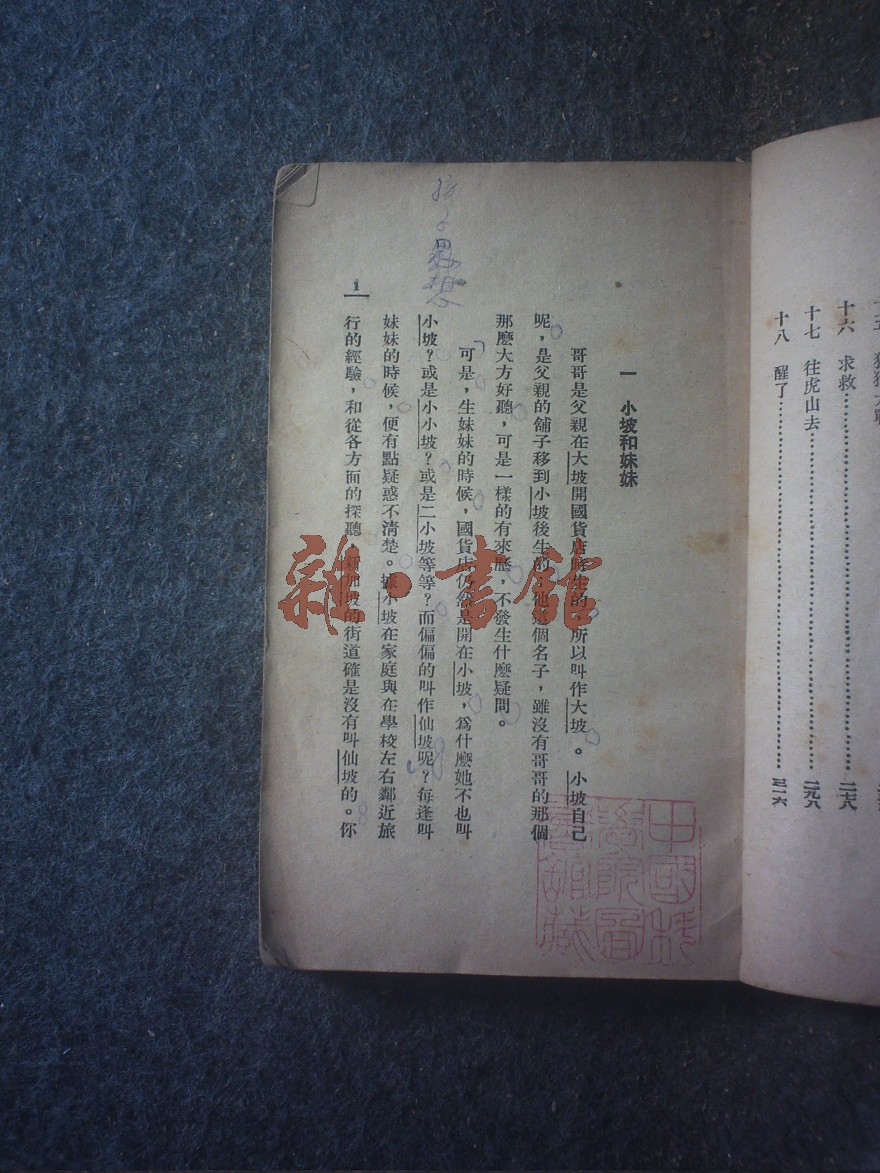 十六　求救⋯⋯⋯⋯⋯⋯⋯⋯⋯⋯二七八
十七　往虎山去⋯⋯⋯⋯⋯⋯⋯⋯⋯⋯二九八
十八　醒了⋯⋯⋯⋯⋯⋯⋯⋯⋯⋯三一六
一　小坡和妹妹
哥哥是父親在大坡開國貨店時生的，所以叫作大坡。小坡自己
呢，是父親的舖子移到小坡後生的；他這個名子，雖沒有哥哥的那個
那麼大方好聽，可是一樣的有來歷，不發生什麼疑問。
可是，生妹妹的時候，國貨店仍然是開在小坡，爲什麼她不也叫
小坡？或是小小坡？或是二小坡等等？而偏偏的叫作仙坡呢？每逢叫
妹妹的時候，便有點疑惑不清楚。據小坡在家庭與在學校左右鄰近旅
行的經驗，和從各方面的探聽，新加坡的街道確是沒有叫仙坡的。你
1
孩子思想
中國科
學院圖
書館藏
雜·書館